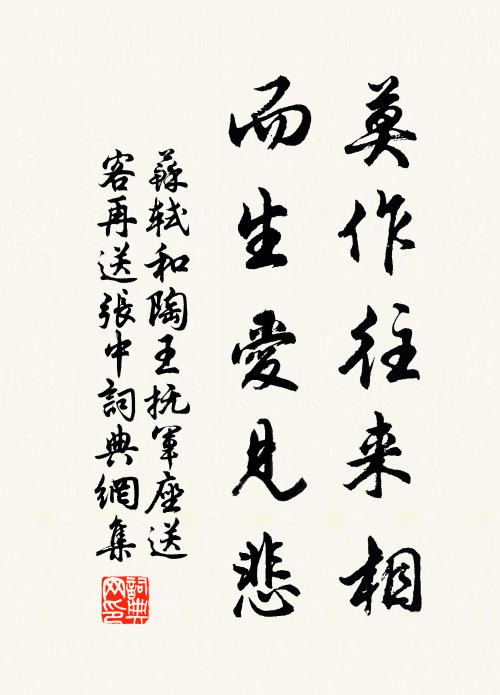 莫作往来相
而生愛見悲
蘇軾和陶王抚軍座送
客再送張中詞典網集
詞典
网印